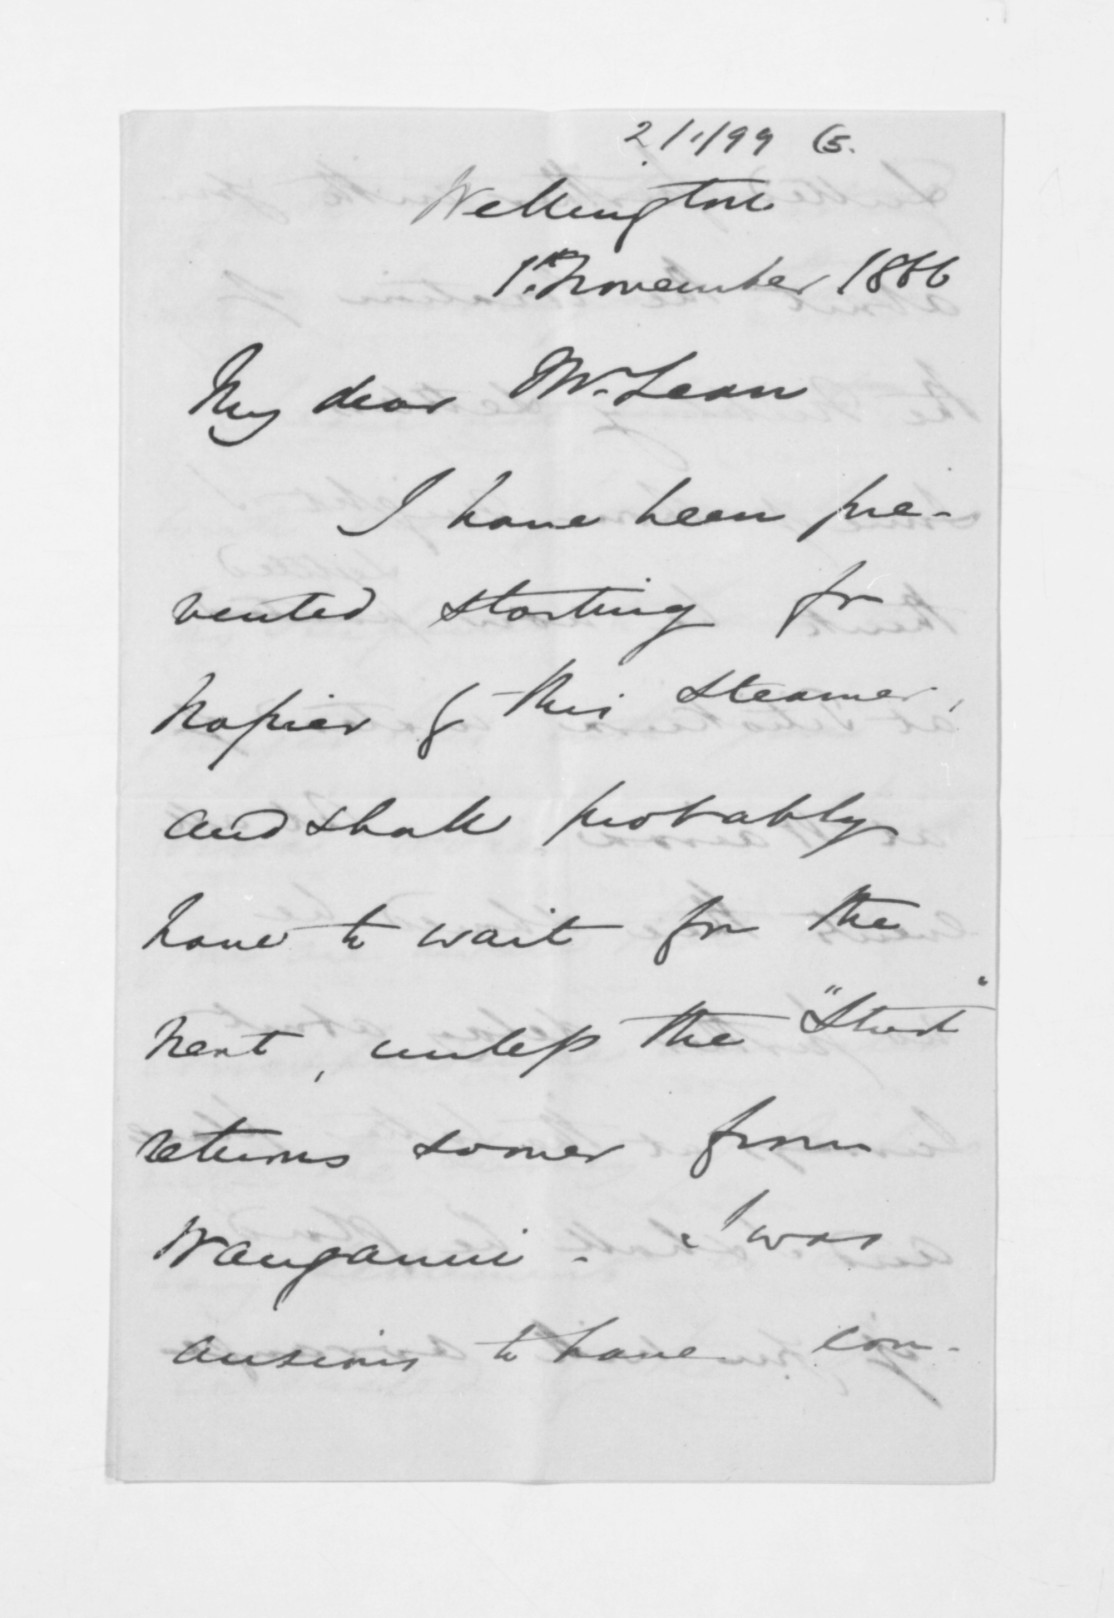 2/1/99 (5.
Wellington
1st. November 1866
My dear McLean
I have been pre-
vented starting for
Napier by this steamer,
and shall probably
have to wait for the
next, unless the "Sturt"
returns sooner from
Wanganui. I was
anxious to have com-